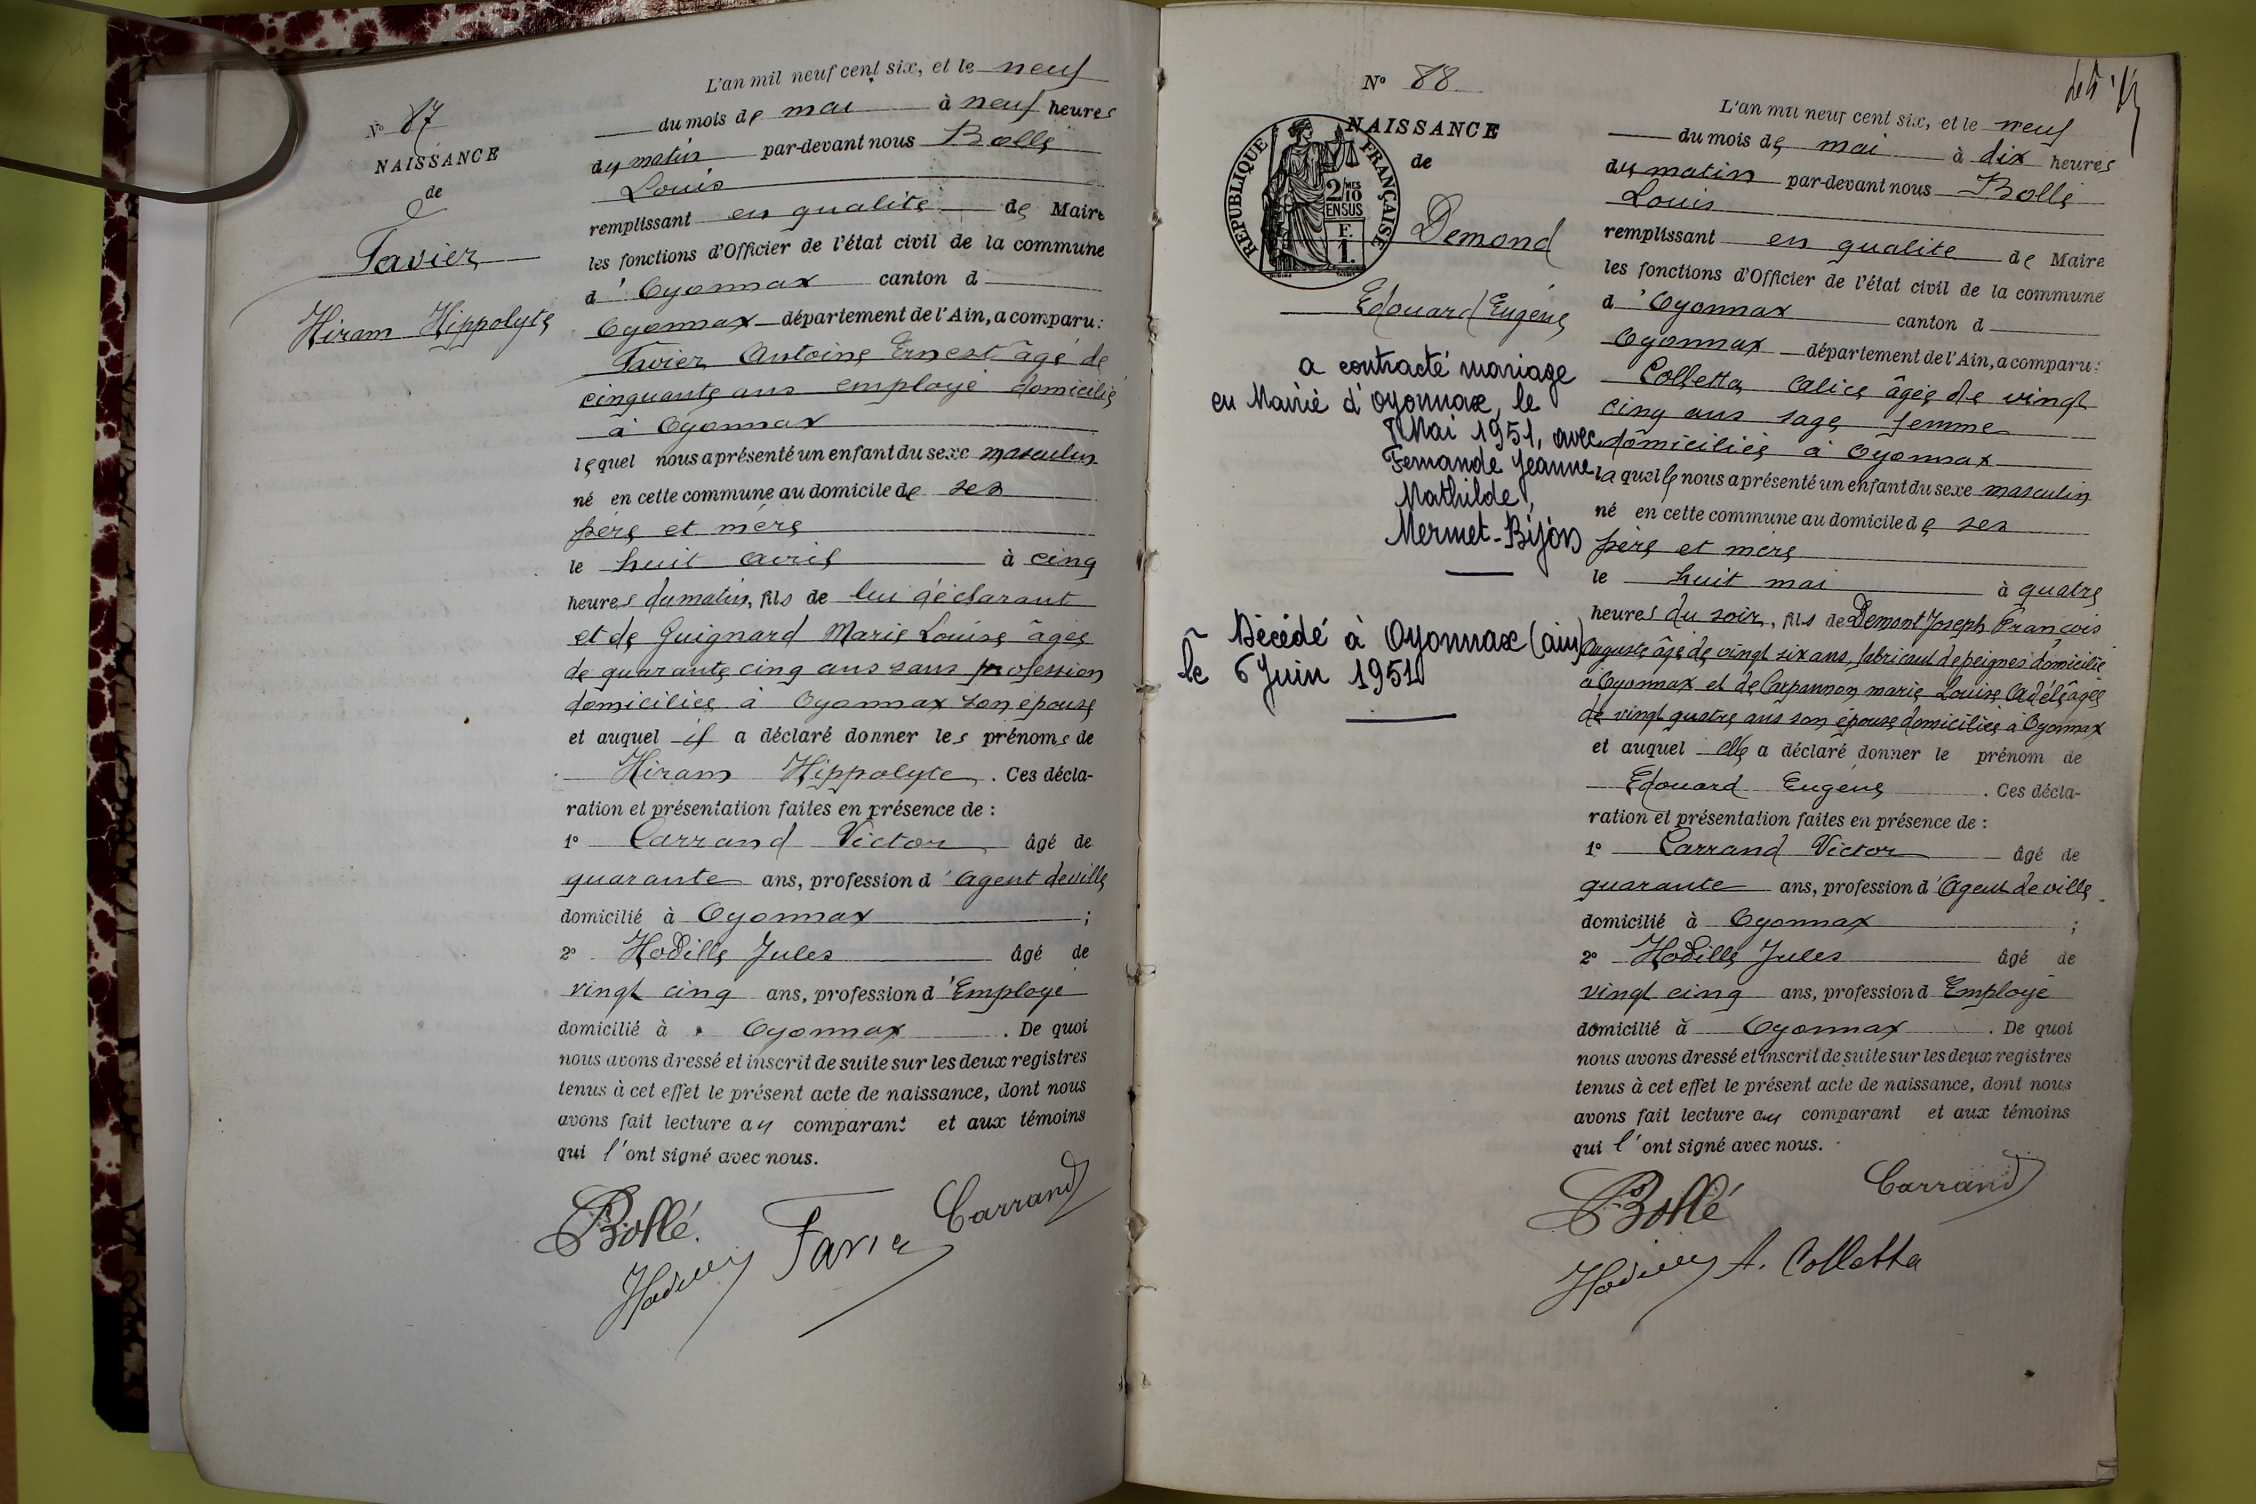 N° 87
NAISSANCE
de
Favier
Hiram Hippolyte
L'an mil neuf cent six, et le neuf
du mois de mai à neuf heures
du matin par-devant nous Bollé
Louis
remplissant en qualité de Maire
les fonctions d'Officier de l'état civil de la commune
d'Oyonnax canton d
Oyonnax département de l'Ain, a comparu :
Favier Antoine Ernest âgé de
cinquante ans employé domicilié
à Oyonnax
lequel nous a présenté un enfant du sexe masculin
né en cette commune au domicile de ses
père et mère
le huit avril à cinq
heures du matin, fils de lui déclarant
et de Guignard Marie Louise âgée
de quarante cinq ans sans profession
domiciliée à Oyonnax son épouse
et auquel il a déclaré donner les prénoms de
Hiram Hippolyte. Ces décla-
ration et présentation faites en présence de :
1° Carrand Victor âgé de
quarante ans, profession d'agent de ville
domicilié à Oyonnax ;
2° Hodille Jules âgé de
vingt cinq ans, profession d'Employé
domicilié à Oyonnax. De quoi
nous avons dressé et inscrit de suite sur les deux registres
tenus à cet effet le présent acte de naissance, dont nous
avons fait lecture au comparant et aux témoins
qui l'ont signé avec nous.
Bollé. Favier Carrand
Hodille
N° 88
NAISSANCE
de
REPUBLIQUE FRANÇAISE
2/10MES
EN SUS
F.
1.
Demond
Edouard Eugène
a contracté mariage
en Mairie d'Oyonnax, le
8 Mai 1951, avec
Fernande Jeanne
Mathilde,
Mermet-Bijon
Décédé à Oyonnax (ain)
le 6 Juin 1951
L'an mil neuf cent six, et le neuf
du mois de mai à dix heures
du matin par-devant nous Bollé
Louis
remplissant en qualité de Maire
les fonctions d'Officier de l'état civil de la commune
d'Oyonnax canton d
Oyonnax département de l'Ain, a comparu :
Colletta Alice âgée de vingt
cinq ans sage femme
domiciliée à Oyonnax
laquelle nous a présenté un enfant du sexe masculin
né en cette commune au domicile de ses
père et mère
le huit mai à quatre
heures du soir, fils de Demont Joseph François
Auguste âgé de vingt six ans, fabricant de peignes domicilié
à Oyonnax et de Carpannon marie Louise Adèle âgée
de vingt quatre ans son épouse domiciliée à Oyonnax
et auquel elle a déclaré donner le prénom de
Edouard Eugène. Ces décla-
ration et présentation faites en présence de :
1° Carrand Victor âgé de
quarante ans, profession d'Agent de ville
domicilié à Oyonnax ;
2° Hodille Jules âgé de
vingt cinq ans, profession d Employé
domicilié à Oyonnax. De quoi
nous avons dressé et inscrit de suite sur les deux registres
tenus à cet effet le présent acte de naissance, dont nous
avons fait lecture au comparant et aux témoins
qui l'ont signé avec nous.
Bollé Carrand
Hodille A. Colletta